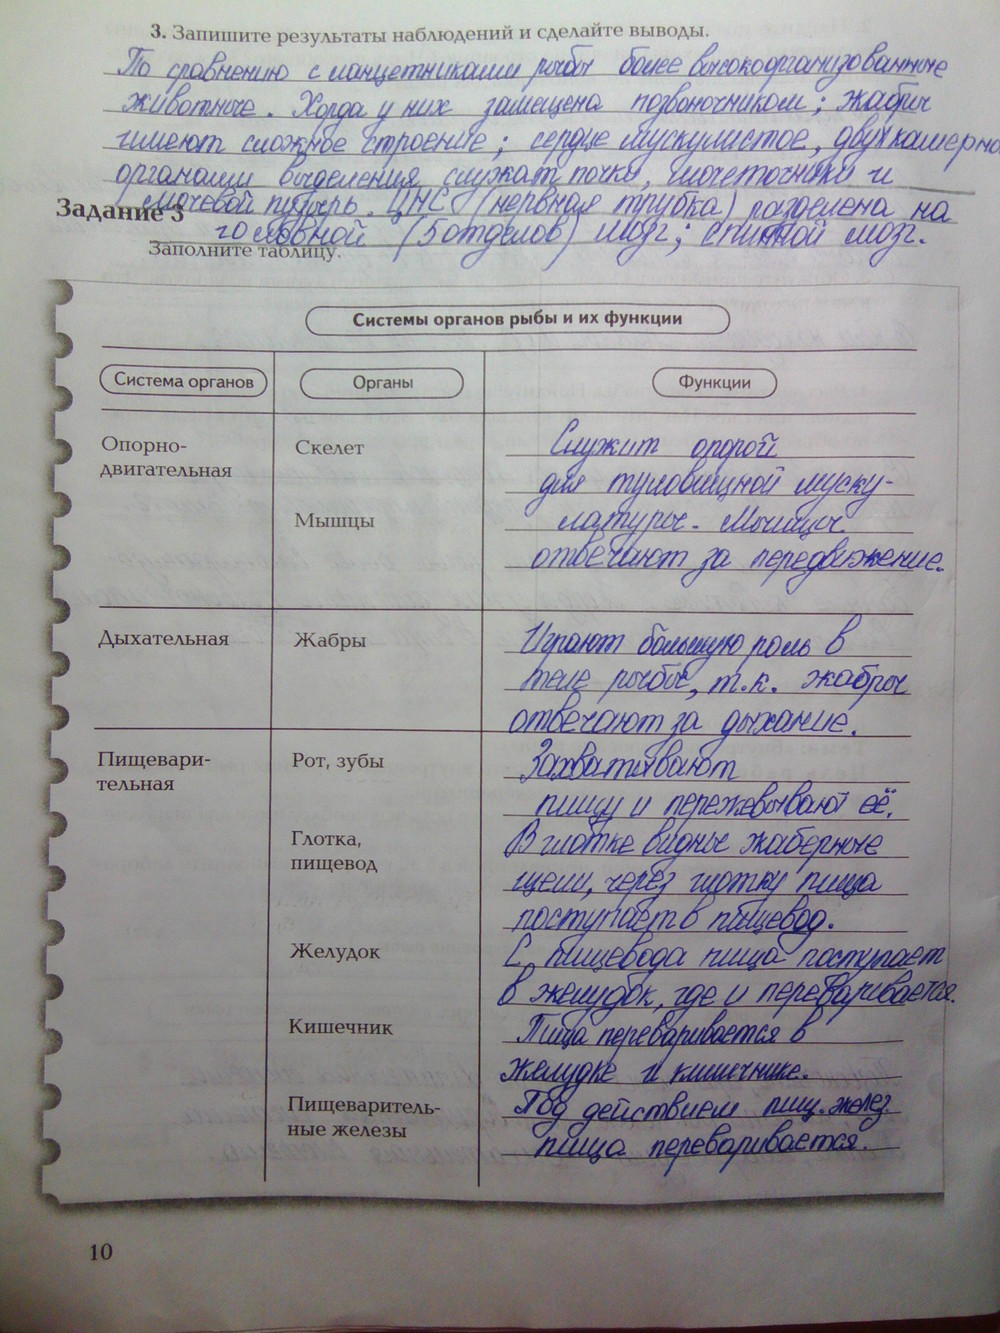 3. Запишите результаты наблюдений и сделайте выводы.
По сравнению с ланцетниками рыбы более высокоорганизованные
животные. Хорда у них замещена позвоночником; жабры
имеют сложное строение; сердце мускулистое, двухкамерно
органами выделения служат почки, мочеточники и
мочевой пузырь. ЦНС (нервная трубка) разделена на
Задание 3
головной (5 отделов) мозг; спинной мозг.
Заполните таблицу.
Системы органов рыбы и их функции
Система органов
Органы
Функции
Опорно-
двигательная
Скелет
Мышцы
Служит опорой
для туловищной муску-
латуры. Мышцы
отвечают за передвижение.
Дыхательная
Жабры
Играют большую роль в
теле рыбы, т.к. жабры
отвечают за дыхание.
Пищевари-
тельная
Рот, зубы
Захватывают
пищу и пережевывают её.
Глотка,
пищевод
В глотке видны жаберные
щели, через глотку пища
поступает в пищевод.
Желудок
С пищевода пища поступает
в желудок, где и переваривается.
Кишечник
Пища переваривается в
желудке и кишечнике.
Пищеваритель-
ные железы
Под действием пищ. желез.
пища переваривается.
10